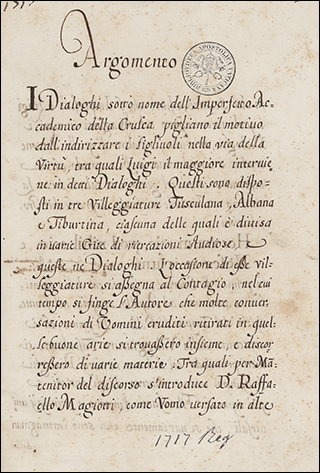 Argomento
I Dialoghi sotto nome dell'Imperfetto Ac-
cademico della Crusca pigliano il motivo
dall'indirizzare i figlivoli nella via della
Virtù, tra quali Luigi il maggiore intervie
ne in detti Dialoghi. Questi sono dispo-
sti in tre Villeggiature Tusculana, Albana
e Tiburtina, ciascuna delle quali è divisa
in varie Gite di ricreazioni Studiose, e
queste ne Dialoghi. L'occasione di esse vil-
leggiature si assegna al Contagio, nel cui
tempo si finge l'Autore che molte conver-
sazioni di Vomini eruditi ritirati in quel-
le buone arie si trovassero insieme, e discor
ressero di varie materie. Tra quali per Ma-
tenitor del discorso s'introduce D. Raffa-
ello Magiotti, come Vomo versato in alte
1717 Reg